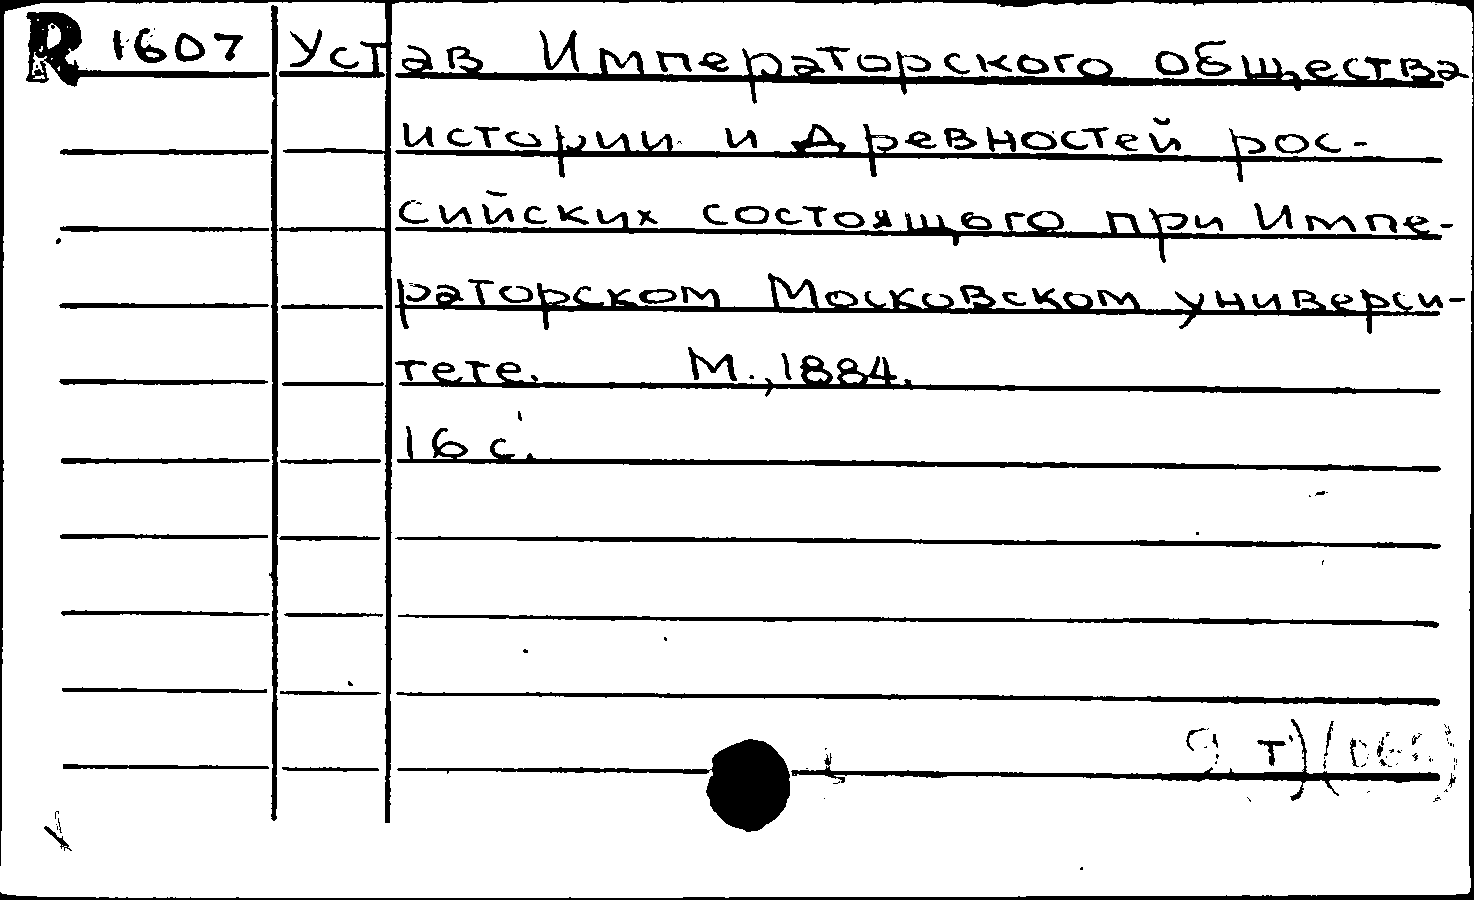 R 1607 Устав Императорского общества
истории и древностей рос-
сийских состоящего при Импе-
раторском Московском универси-
тете. М., 1884.
16 с.